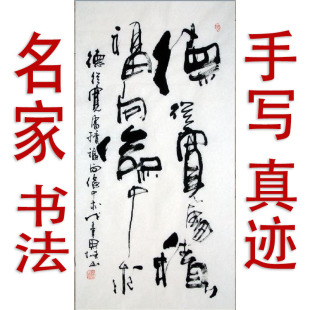 名家 书法
手写 真迹
德從寬處積
福向儉中求
德從寬處積福向儉中求